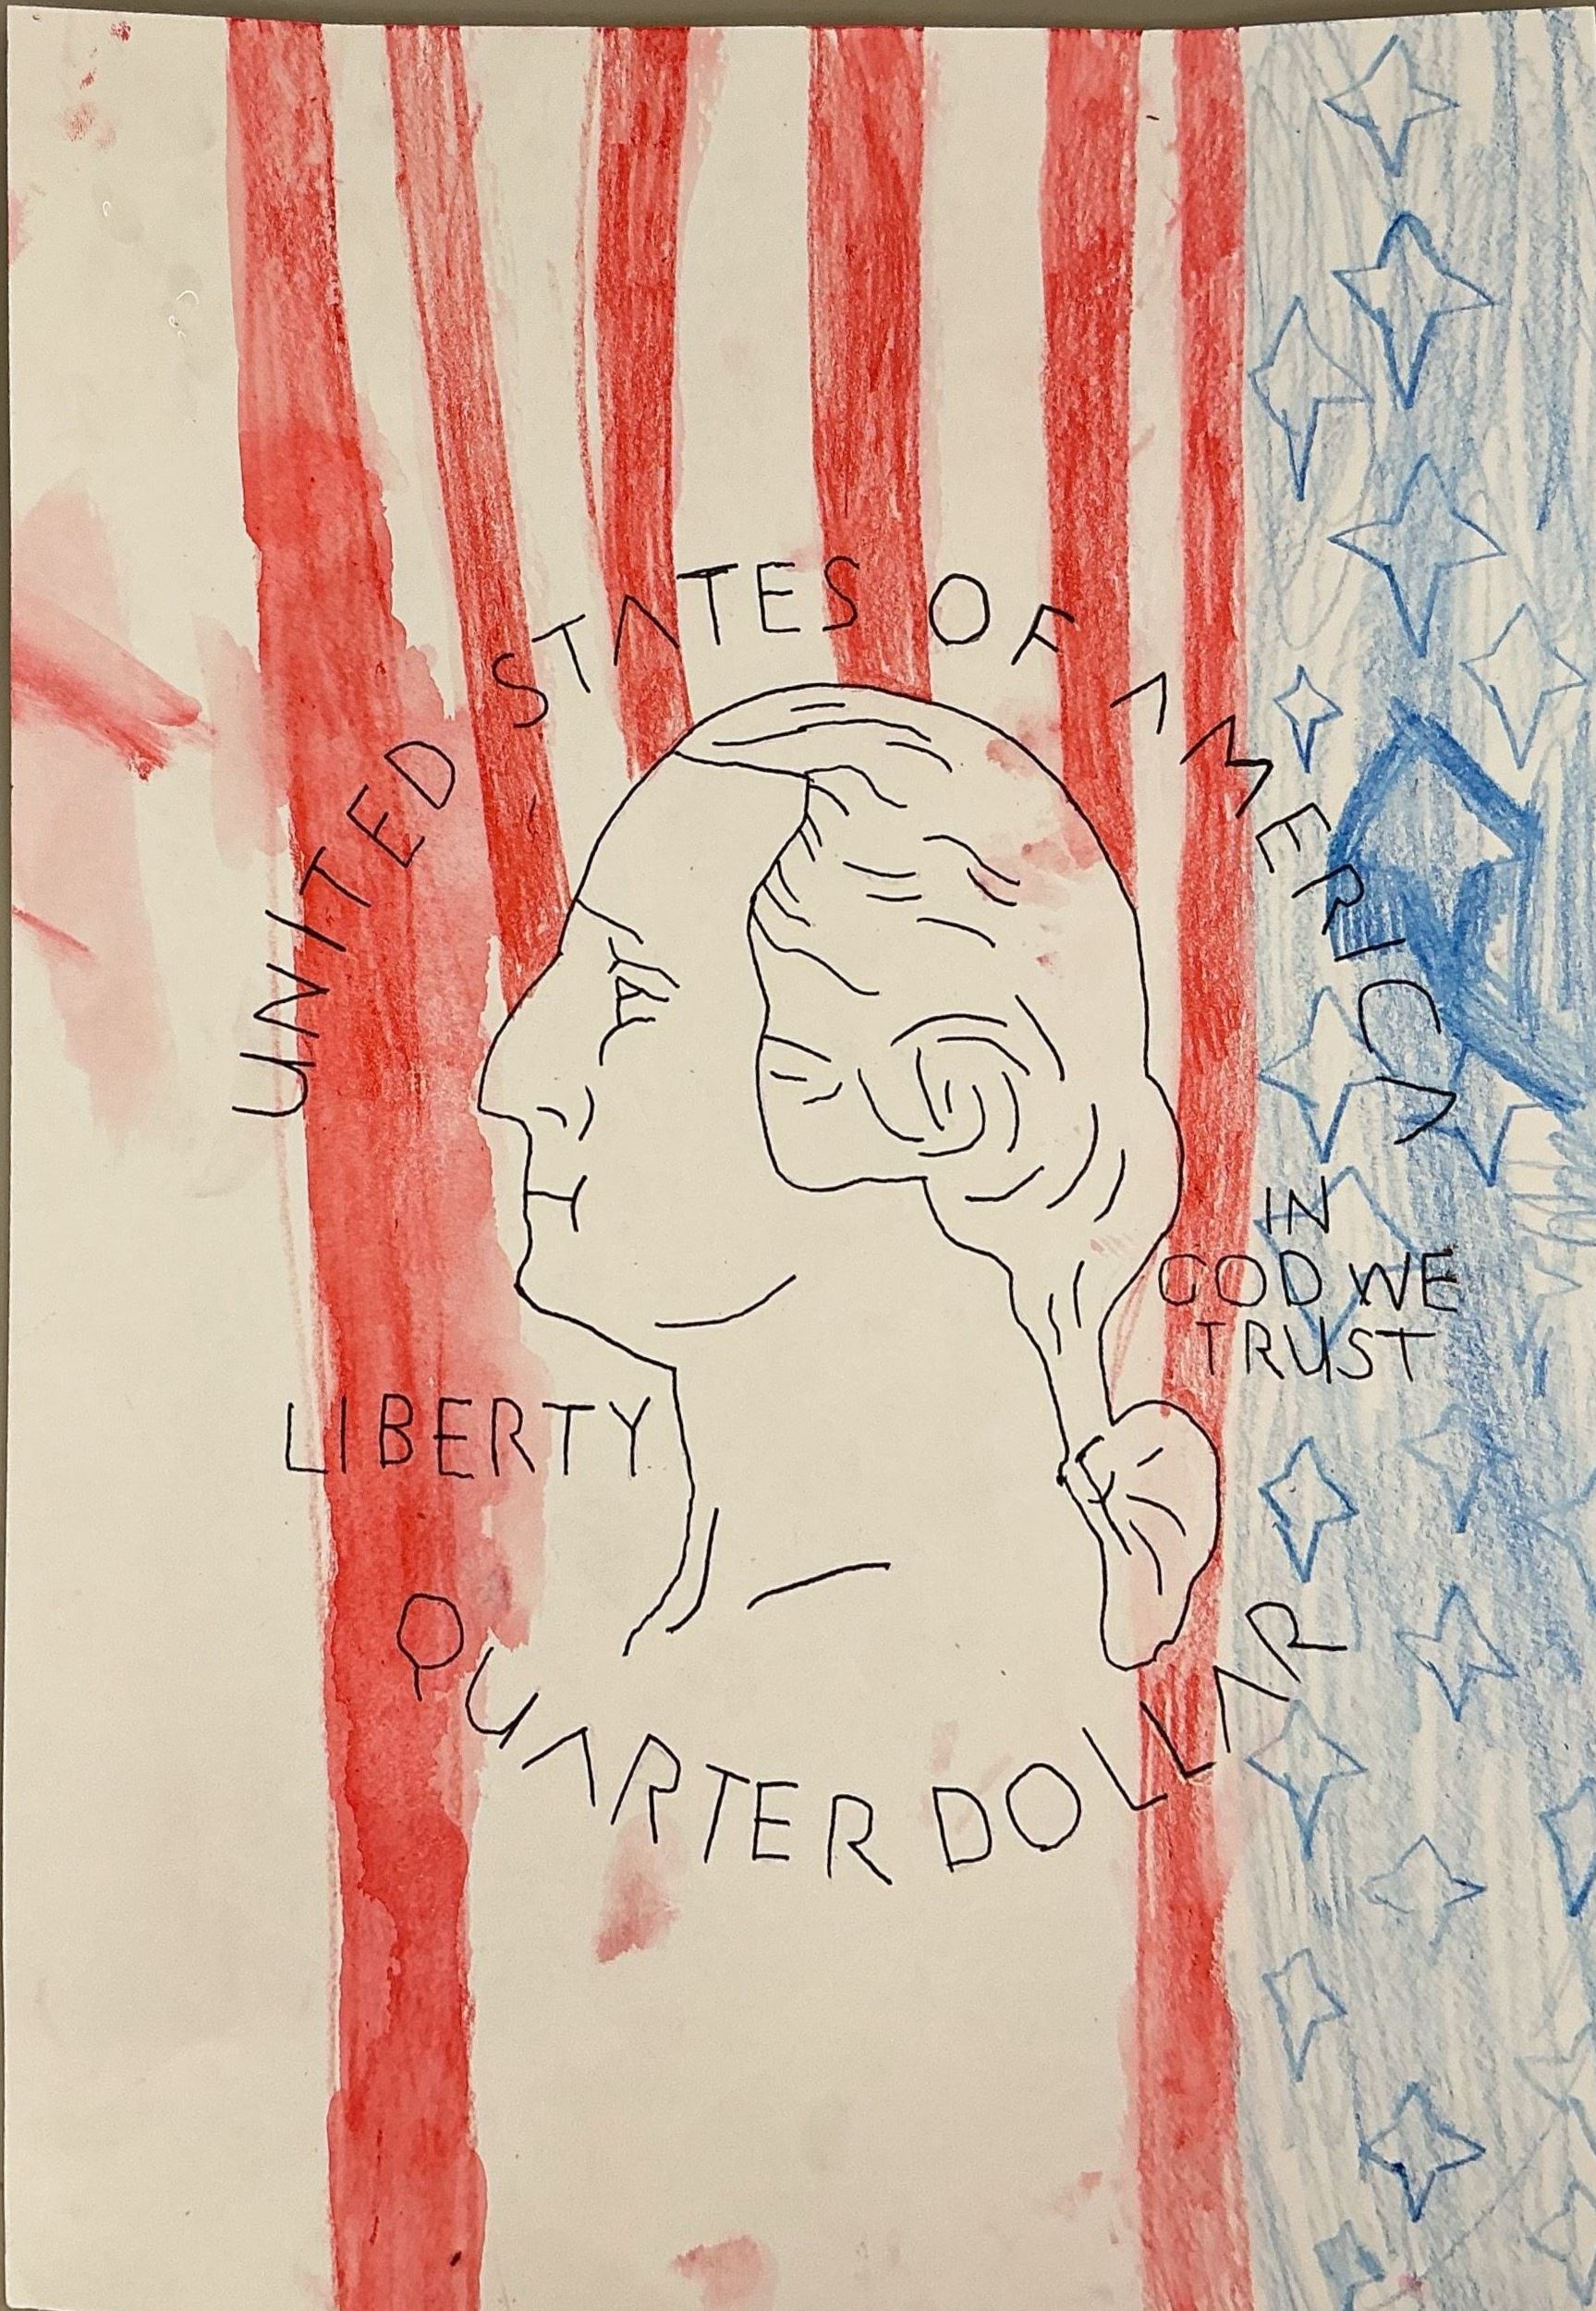 UNITED STATES OF AMERICA
IN
GOD WE
TRUST
LIBERTY
QUARTER DOLLAR